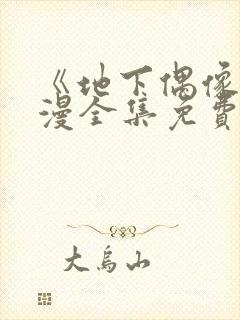 《地下偶像
漫全集免費
大烏山